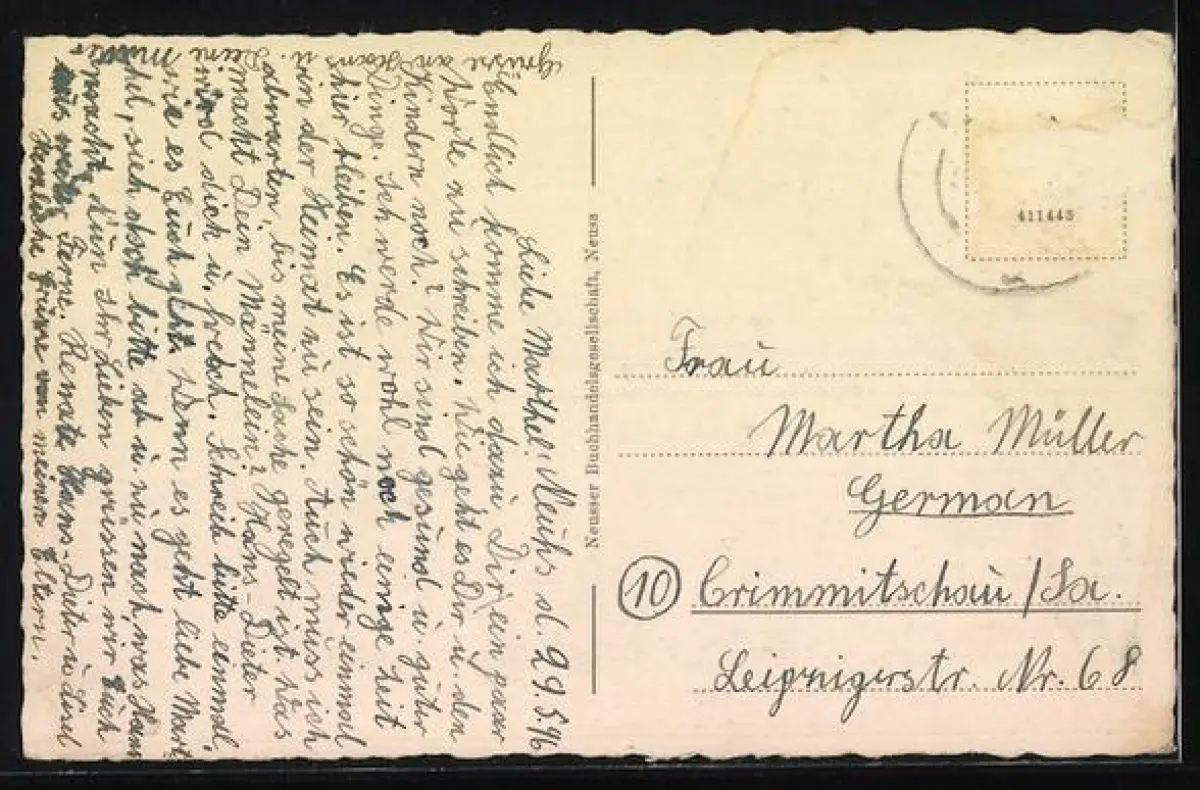 Liebe Marthel! Neuhs d. 29.5.46
Endlich komme ich dazu Dir ein paar
Worte zu schreiben. Wie geht es Dir u. den
Kindern noch? Wir sind gesund u. guter
Dinge. Ich werde wohl noch einige Zeit
hier bleiben. Es ist so schön wieder einmal
in der Heimat zu sein. Auch muss ich
abwarten, bis meine Sache geregelt ist. Was
macht Dein Männelein? Hans-Dieter
wird dick u. frech. Schreib bitte einmal,
wie es Euch geht. Wenn es geht liebe Mart
hel, sieh doch bitte ab u. zu nach, was Hans
macht. Nun Ihr Lieben grüssen wir Euch
aus weiter Ferne. Renate Hans-Dieter u. Lisel
Herzliche Grüsse von meinen Eltern.
Grüsse an Hans u. Deine Mutter
Neusser Buchhandelsgesellschaft, Neuss
411443
Frau
Martha Müller
German
(10) Crimmitschau/Sa.
Leipzigerstr. Nr. 68